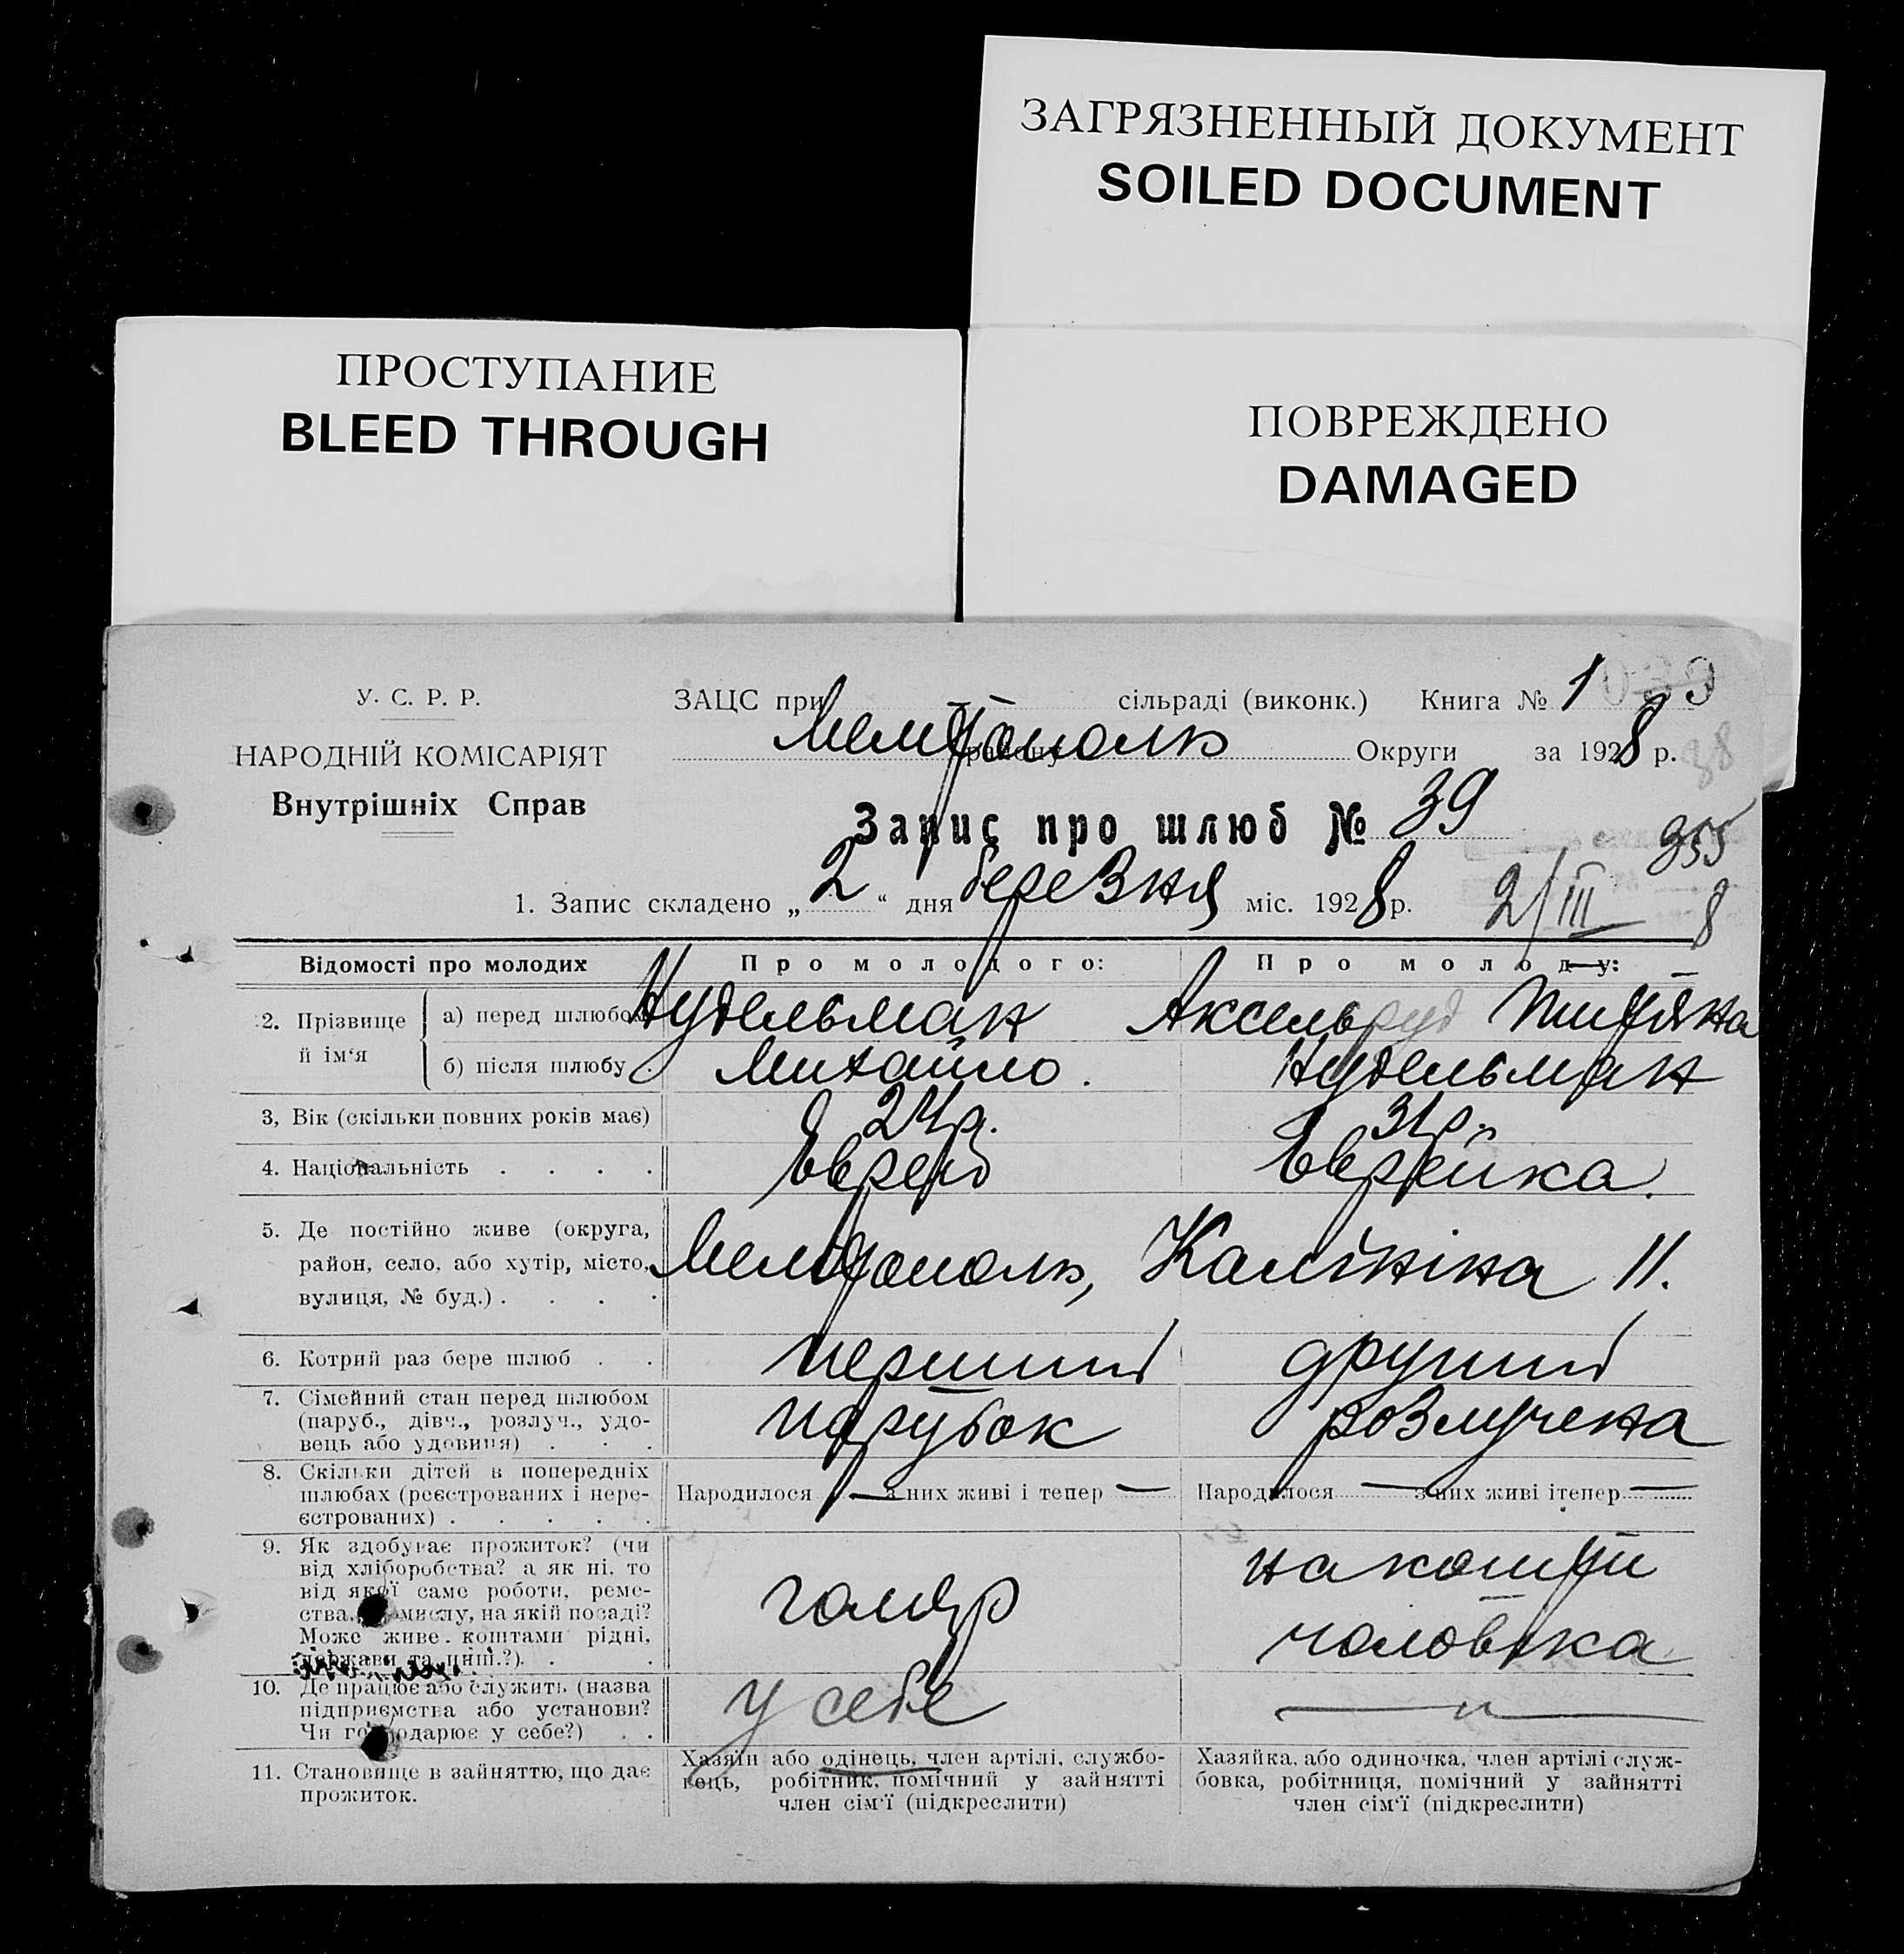 ЗАГРЯЗНЕННЫЙ ДОКУМЕНТ
SOILED DOCUMENT
ПРОСТУПАНИЕ
BLEED THROUGH
ПОВРЕЖДЕНО
DAMAGED
У. С. Р. Р.
НАРОДНІЙ КОМІСАРІЯТ
Внутрішніх Справ
ЗАЦС при сільраді (виконк.) Книга № 1
Мелітополь району Округи за 1928 р.
Запис про шлюб № 39
355
1. Запис складено „ 2 “ дня березня міс. 1928 р. 2/III 8
Відомості про молодих Про молодого: Про молоду:
2. Прізвище й ім‘я
а) перед шлюбом Нудельман Аксельруд
б) після шлюбу Михайло. Нудельман
3, Вік (скільки повних років має) 24р. 31р.
4. Національність . . . . Еврей Еврейка.
5. Де постійно живе (округа,
район, село, або хутір, місто, Мелітополь, Калініна 11.
вулиця, № буд.) . . . .
6. Котрий раз бере шлюб . . перший другий
7. Сімейний стан перед шлюбом
(паруб., дівч., розлуч., удо- парубок розлучена
вець або удовиця) . . .
8. Скільки дітей в попередніх
шлюбах (реєстрованих і нере- Народилося — з них живі і тепер — Народилося — з них живі ітепер —
єстрованих) . . . . .
9. Як здобуває прожиток? (чи
від хліборобства? а як ні, то
від якої саме роботи, реме-
ства, промислу, на якій посаді?
Може живе коштами рідні,
держави та инш.?) . .
голяр
на кошти
чоловіка
10. Де працює або служить (назва
підприємства або установи?
Чи господарює у себе?) . .
у себе — „ —
11. Становище в зайняттю, що дає
прожиток.
Хазяїн або одінець, член артілі, службо-
вець, робітник, помічний у зайнятті
член сім‘ї (підкреслити)
Хазяйка, або одиночка, член артілі служ-
бовка, робітниця, помічний у зайнятті
член сім‘ї (підкреслити)